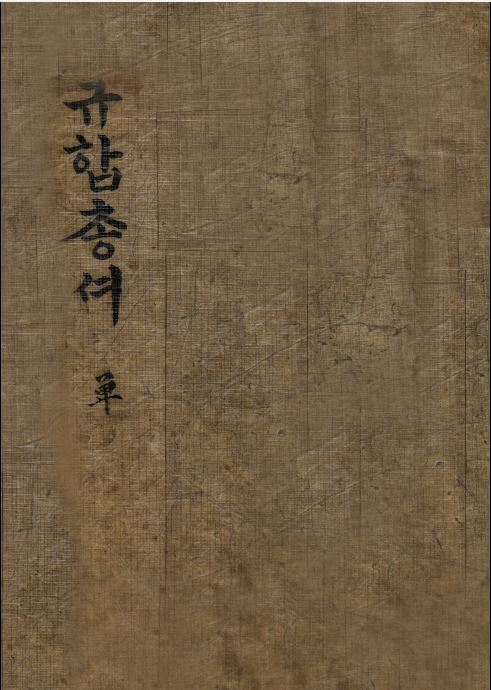 규합총셔 單